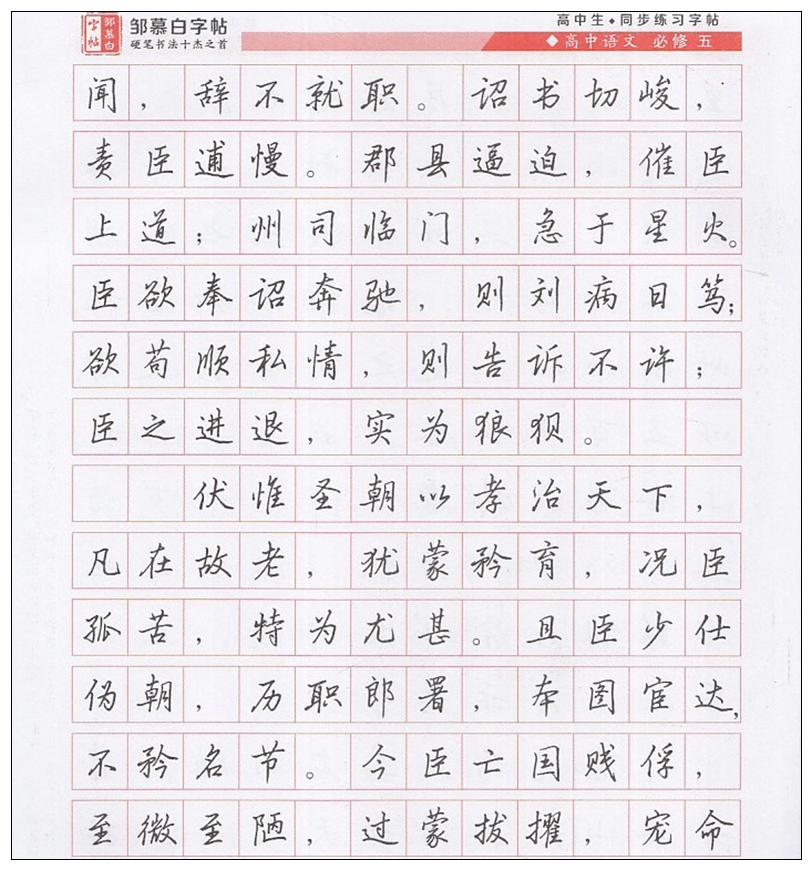 邹慕白字帖
邹慕白字帖
硬笔书法十杰之首
高中生◆同步练习字帖
◆高中语文 必修 五
闻，辞不就职。诏书切峻，
责臣逋慢。郡县逼迫，催臣
上道；州司临门，急于星火。
臣欲奉诏奔驰，则刘病日笃；
欲苟顺私情，则告诉不许；
臣之进退，实为狼狈。
伏惟圣朝以孝治天下，
凡在故老，犹蒙矜育，况臣
孤苦，特为尤甚。且臣少仕
伪朝，历职郎署，本图宦达，
不矜名节。今臣亡国贱俘，
至微至陋，过蒙拔擢，宠命